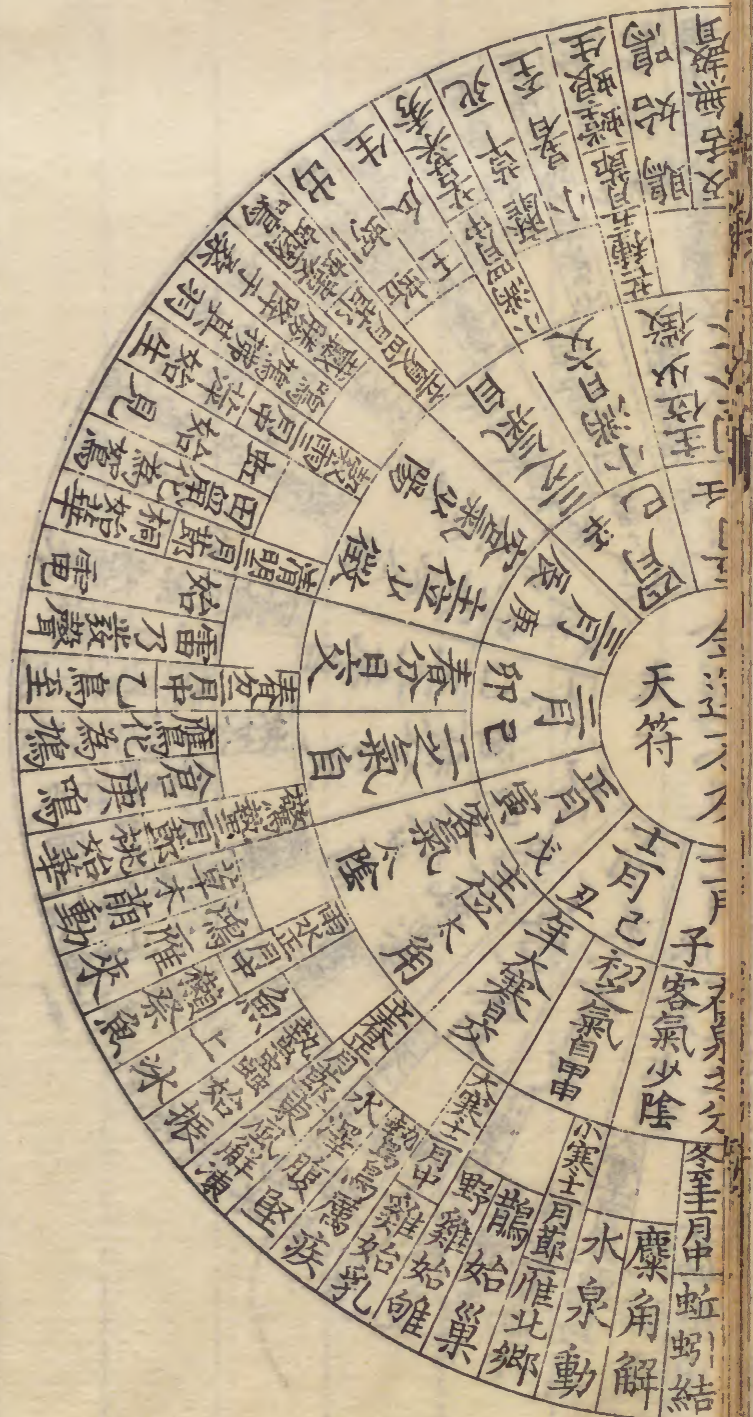 天符
子
十二月己丑
正月戊寅
二月己卯
三月庚辰
四月
巳
客氣少陰
初之氣自甲申
年大寒日交
主位太角
客氣太陰
二之氣自
春分日交
主位少徵
客氣少陽
三之氣自
小滿日交
主位少徵
冬至十一月中蚯蚓結
麋角解
水泉動
小寒十二月節雁北鄉
鵲始巢
野雞始雊
大寒十二月中雞始乳
鷙鳥厲疾
水澤腹堅
立春正月節東風解凍
蟄蟲始振
魚上冰
雨水正月中獺祭魚
鴻雁來
草木萌動
驚蟄二月節桃始華
倉庚鳴
鷹化為鳩
春分二月中乙鳥至
雷乃發聲
始電
清明三月節桐始華
田鼠化為鴽
虹始見
穀雨三月中萍始生
鳴鳩拂其羽
戴勝降于桑
立夏四月節螻蟈鳴
蚯蚓出
王瓜生
小滿四月中苦菜秀
靡草死
小暑至
芒種五月節螳螂生
鵙始鳴
反舌無聲